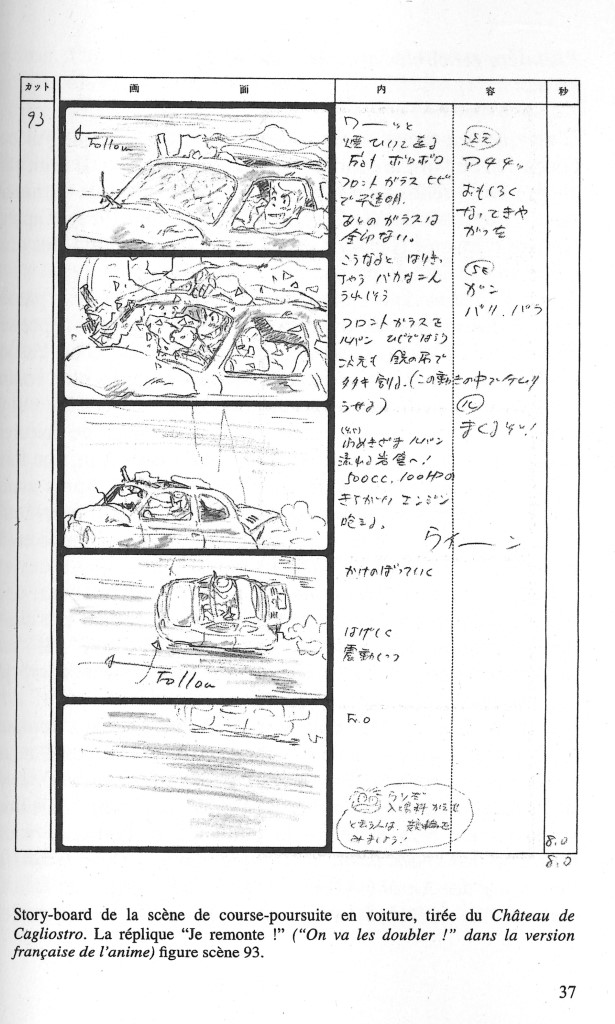 カット
画 面
内 容
秒
93
Follow
ワーーッと
煙ひいて走る
ボロボロ
フロントガラス ヒビ
で 不透明.
あとのガラスは
全部ない。
こうなると はりき,
ちゃう バカな二人
うれしそう
フロントガラスを
ルパン ひじではらう
次元も 銃の
タタキ割る.(この動きの中で
うせる)
ルパン
流れる岩壁へ!
500cc. 100HPの
きちがい エンジン
咆える。
かけのぼっていく
はげしく
震動しつつ
F.O
次元
アチチッ
おもしろく
なってきや
がった
SE
ガン
バリ. バラ
ル
まくるぞい!
Follow
8.0
8.0
Story-board de la scène de course-poursuite en voiture, tirée du Château de
Cagliostro. La réplique “Je remonte !” (“On va les doubler !” dans la version
française de l’anime) figure scène 93.
37